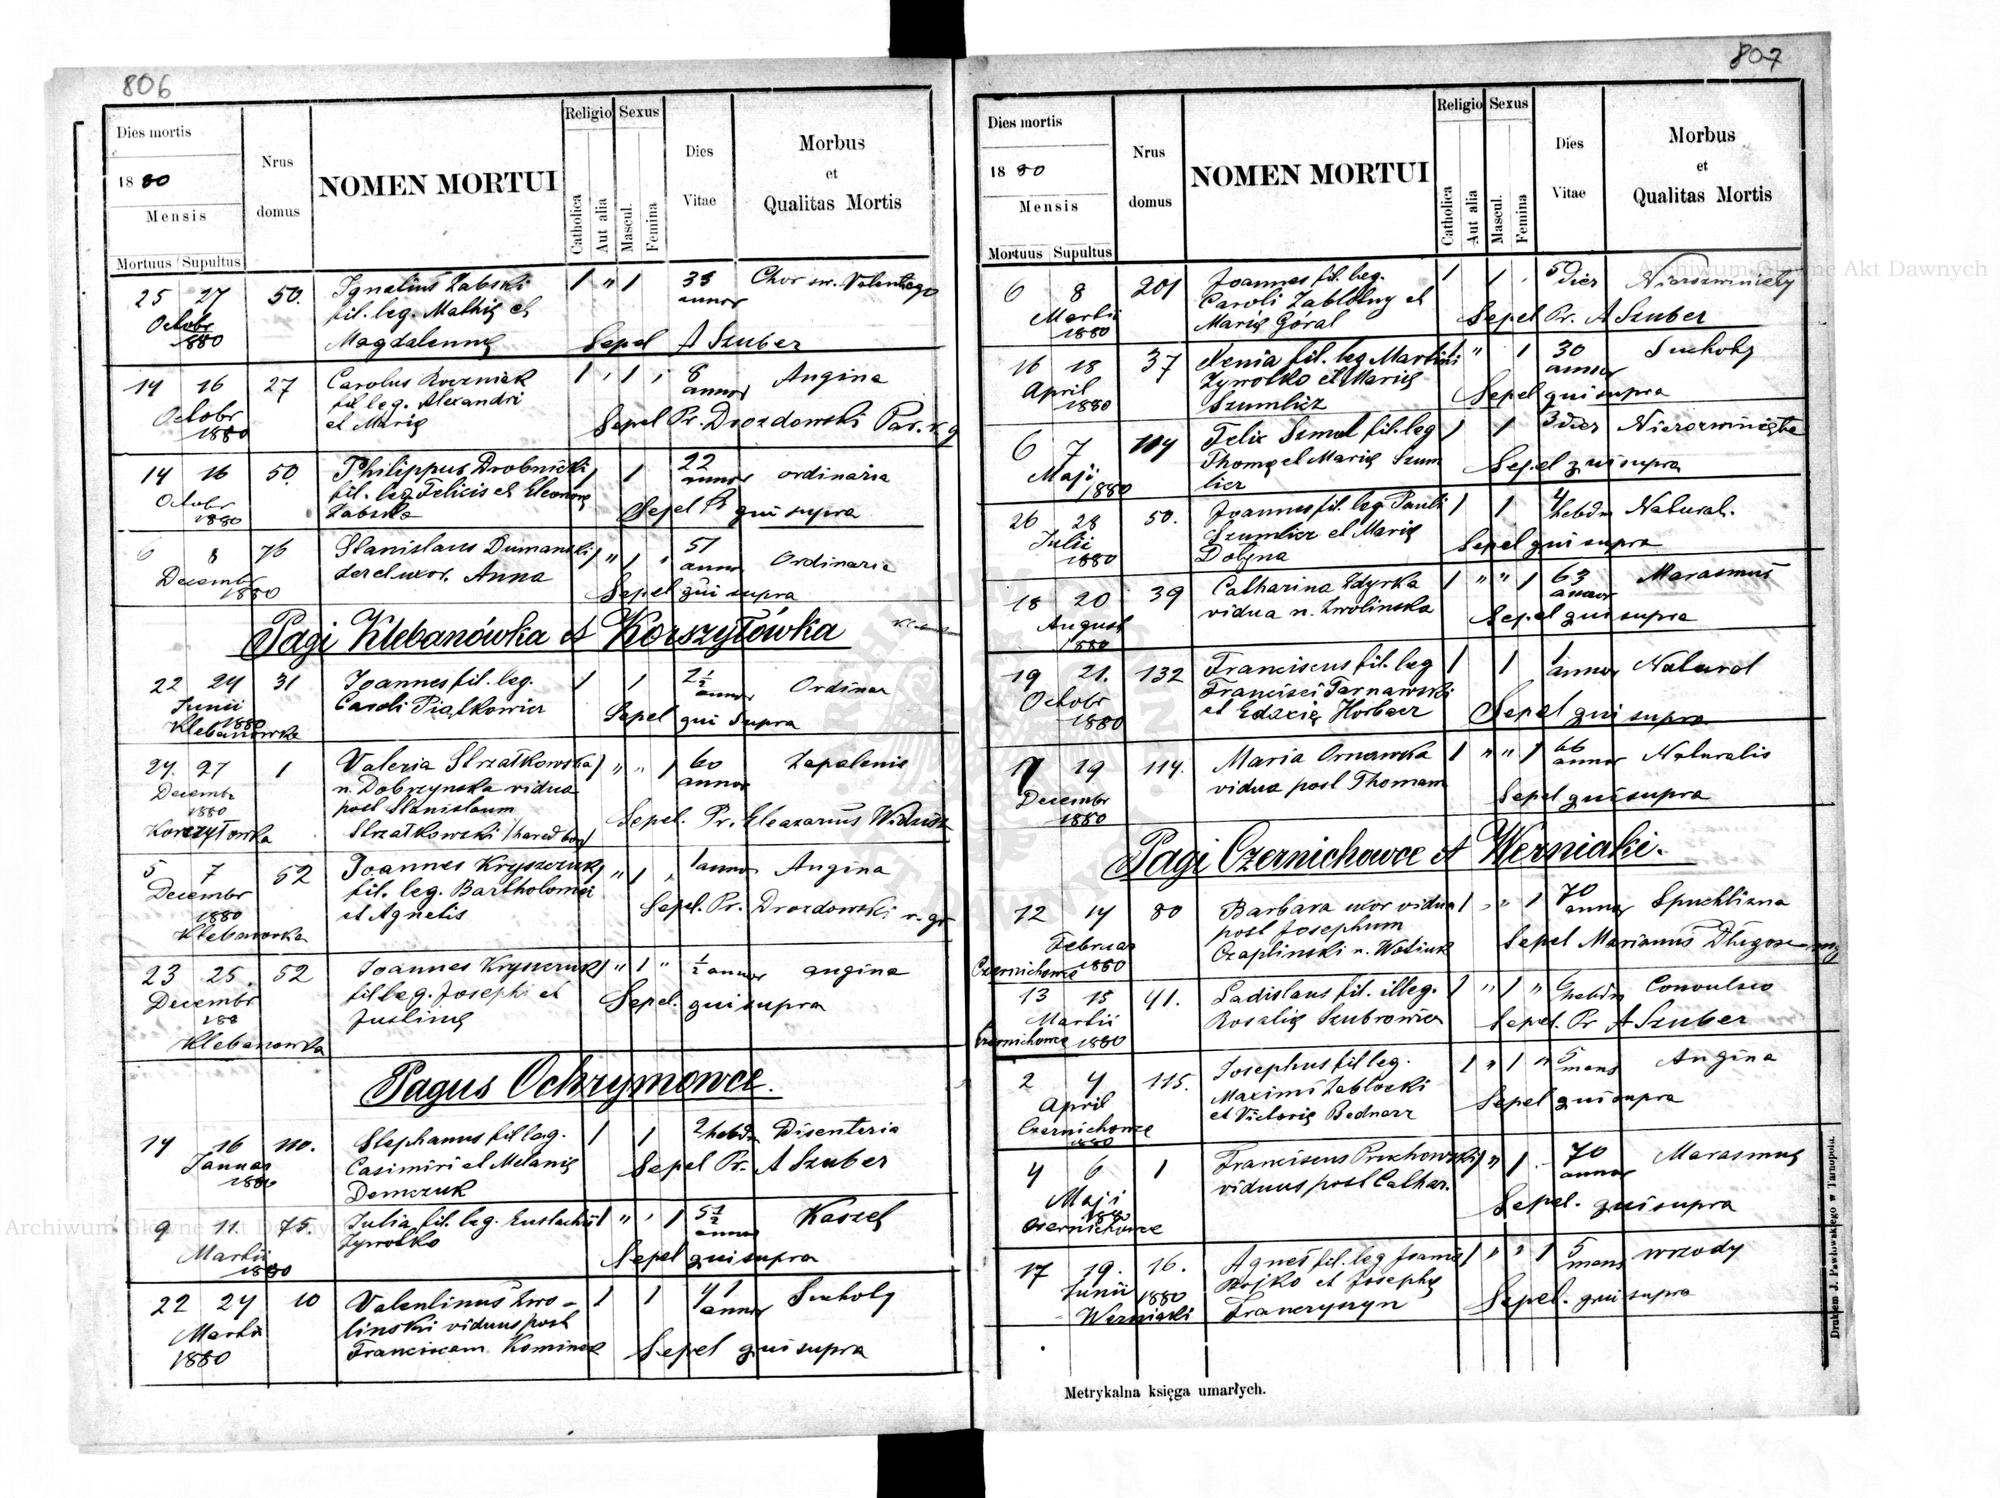 806
Dies mortis
1880
Mensis
Mortuus Supultus
Nrus
domus
NOMEN MORTUI
Religio
Catholica
Aut alia
Sexus
Mascul.
Femina
Dies
Vitae
Morbus
et
Qualitas Mortis
25 27 50. Ignatius Zabski 1 " 1 33 Chor sw. Valentego
Octobr fil. leg. Mathię et annor
1880 Magdalennę Sepel A Szuber
14 16 27 Carolus Roczniak 1 1 8 Angina
Octobr fil leg. Alexandri annor
1880 et Marię Sepel Pr. Drozdowski Par. r. g
14 16 50. Philippus Drobnicki 1 1 22 ordinaria
Octobr fil. leg Felicis et Eleonorę annor
1880 Zabska Sepel Pr qui supra
6 8 76 Stanislaus Dumanski 1 " 1 " 51 Ordinaria
Decembr annor
1880 Anna Sepel qui supra
Pagi Klebanówka et Korszyłówka
22 24 31 Joannes fil. leg. 1 1 2 1/2 Ordinar
Junii Caroli Piątkowicz annor
1880 Sepel qui supra
Klebanowka
24. 27 1 Valeria Strzałkowska 1 " " 1 60 Zapalenie
Decembr n. Dobrzynska vidua annor
1880 post Stanislaum Sepel. Pr. Eleazarius
Korszyłowka Strzatkowski
5 7 52 Joannes Kryszczuk 1 " 1 1 annor Angina
Decembr fil. leg. Bartholomei
1880 et Agnetis Sepel. Pr. Drozdowski r. gr
Klebanowka
23 25. 52 Joannes Kryszczuk 1 " 1 " 1/2 annor angina
Decembr fil leg. Josephi et Sepel. qui supra
188 Justinę
Klebanowka
Pagus Ochrymowce.
14 16 110. Stephanus fil leg. 1 1 2 hebdm Disenteria
Januar Casimiri et Melanię Sepel Pr. A Szuber
1880 Demczuk
9 11. 75. Julia fil. leg. Eustachii 1 " ' 1 5 1/2 Kaszel
Martii Zywotko annor
1880 Sepel qui supra
22 24 10 Valentinus Zwo- 1 1 41 Suchoty
Martii linski viduus post annor
1880 Franciscam Kominek Sepel qui supra
807
Dies mortis
1880
Mensis
Mortuus Supultus
Nrus
domus
NOMEN MORTUI
Religio
Catholica
Aut alia
Sexus
Mascul.
Femina
Dies
Vitae
Morbus
et
Qualitas Mortis
6 8 201 Joannes fil. leg. 1 1 5 dier Nierozwinięty
Martii Caroli Zablotny et
1880 Marię Góral Sepel Pr. A Szuber
16 18 37 Xenia fil. leg Martini " 1 30 Suchoty
April Zywotko et Marię annor
1880 Szumlicz Sepel qui supra
6 7 104 Felix Szmet fil. leg 1 1 3 dier Nierozwinięte
Maji Thomę et Marię Szum Sepel qui supra
1880 licz
26 28 50. Joannes fil. leg Pauli 1 1 4 hebdm Natural.
Julii Szumlicz et Marię Sepel qui supra
1880
18 20 39 Catharina Zdyrka 1 " " 1 63 Marasmus
August vidua n. Zwolinska annor
1880 Sepel qui supra
19 21. 132 Franciscus fil. leg 1 1 1 Natural
Octobr Francisci Tarnawski annor
1880 Horbacz Sepel qui supra
17 19 114. Maria Ornawska 1 " " 1 66 Naturalis
Decembr vidua post Thomam annor
1880 Sepel qui supra
Pagi Czernichowce et Werniaki.
12 14 80 Barbara uxor vidua 1 " " 1 70 Spuchlizna
Februar post Josephum annor
Czernichowce 1880 Czaplinski n. Wosiuk Sepel Marianus
13 15 41. Ladislaus fil. illeg. 1 " 1 " 6 hebdm Convulsio
Martii Rosalię Szubrowicz Sepel. Pr A Szuber
Czernichowce 1880
2 4 115. Josephus fil leg. 1 " 1 " 5 Angina
April Maximi Zablocki mens
Czernichowce et Victorię Bednarz Sepel qui supra
1880
4 6 1 Franciscus Pruchowski 1 " 1 70 Marasmus
Maji viduus post Cathar. annor
1880 Sepel. qui supra
Czernichowce
17 19. 16. Agnes fil. leg Joannis 1 " " 1 5 wrzody
Junii 1880 Bojko et Josephę mens
Werniaki Franczyszyn Sepel. qui supra
Metrykalna księga umarłych.
Drukiem J. Pawłowskiego w Tarnopolu.
Archiwum Główne Akt Dawnych
Archiwum Główne Akt Dawnych